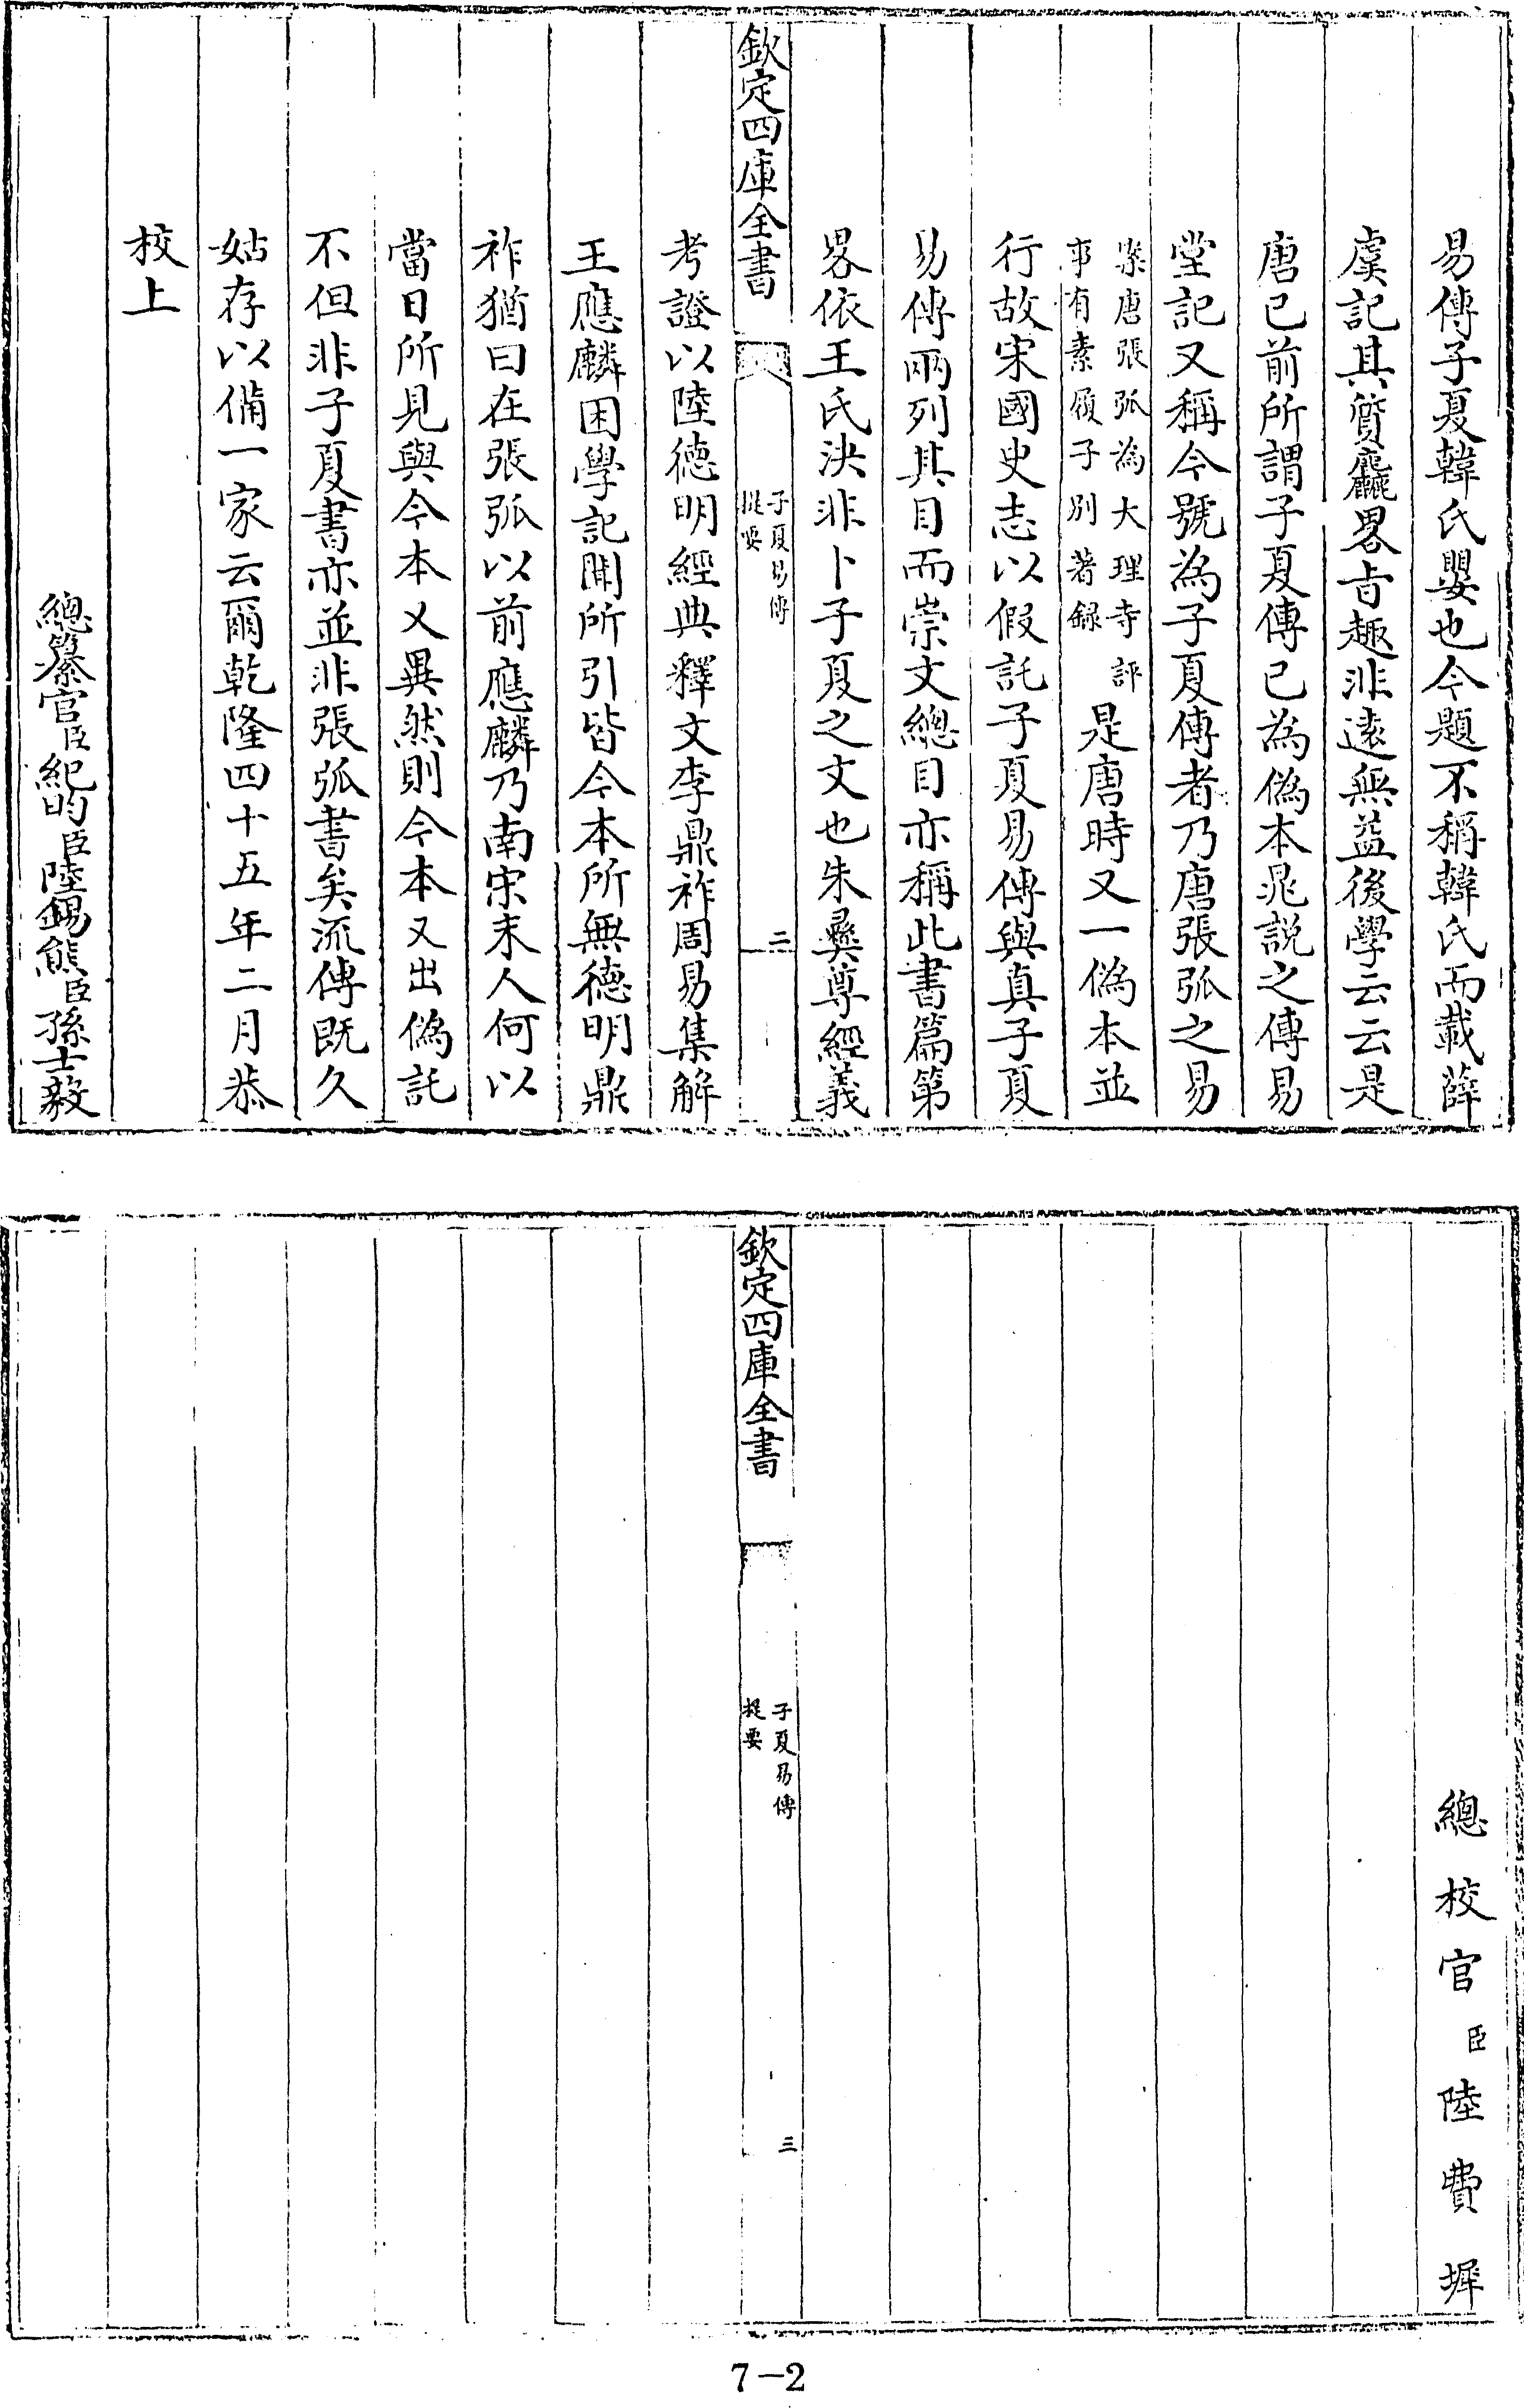 易傳子夏韓氏嬰也今題不稱韓氏而載薛
虞記其質麤畧㫖趣非逺無益後學云云是
唐已前所謂子夏傳已為偽本晁説之傳易
堂記又稱今號為子夏傳者乃唐張弧之易
案唐張弧為大理寺評
事有素履子别著録
是唐時又一偽本並
行故宋國史志以假託子夏易傳與真子夏
易傳兩列其目而崇文總目亦稱此書篇第
畧依王氏決非卜子夏之文也朱彞尊經義
欽定四庫全書
子夏易傳
提要
二
考證以陸德明經典釋文李鼎祚周易集解
王應麟困學記聞所引皆今本所無德明鼎
祚猶曰在張弧以前應麟乃南宋末人何以
當日所見與今本又異然則今本又出偽託
不但非子夏書亦並非張弧書矣流傳既久
姑存以備一家云爾乾隆四十五年二月恭
校上
總纂官臣紀昀臣陸錫熊臣孫士毅
總校官臣陸費墀
欽定四庫全書
子夏易傳
提要
三
7-2